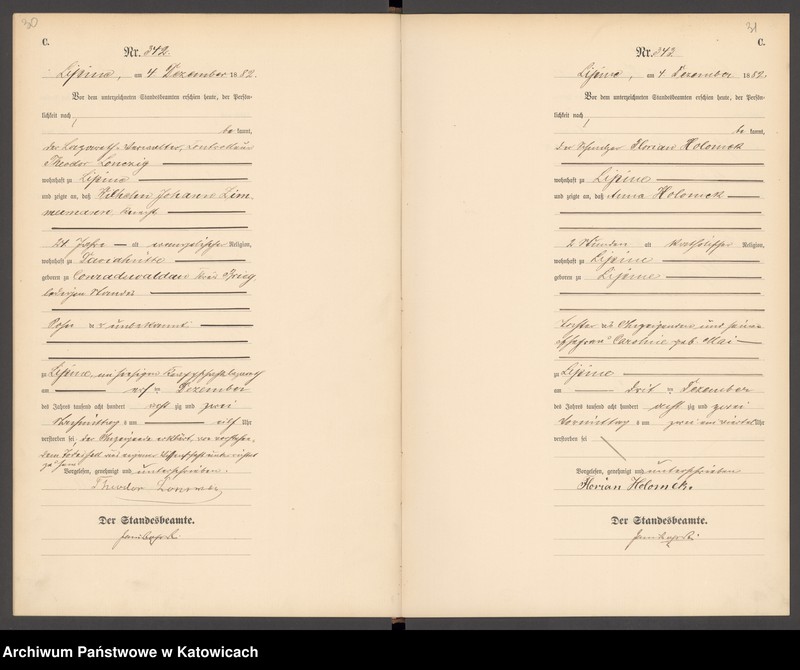 30
C.
Nr. 342.
Lipine, am 4. Dezember 1882.
Vor dem unterzeichneten Standesbeamten erschien heute, der Persön-
lichkeit nach
be kannt,
der Lazareth-Verwalter,
Theodor
wohnhaft zu Lipine
und zeigte an, daß Wilhelm Johann Zim-
mermann Knecht
21 Jahre alt evangelischer Religion,
wohnhaft zu
geboren zu Kreis Brieg,
ledigen Standes
Sohn unbekannt
zu Lipine, im hiesigen
am Dezember
des Jahres tausend acht hundert acht zig und zwei
Nachmittags um Uhr
verstorben sei, der Anzeigende erklärt, von vorstehen-
dem Todesfall aus eigener Wissenschaft unterrichtet
zu sein
Vorgelesen, genehmigt und unterschrieben.
Theodor
Der Standesbeamte.
31
C.
Nr. 342
Lipine, am 4. Dezember 1882.
Vor dem unterzeichneten Standesbeamten erschien heute, der Persön-
lichkeit nach
be kannt,
der Florian Holomek
wohnhaft zu Lipine
und zeigte an, daß Anna Holomek
2 Stunden alt katholischer Religion,
wohnhaft zu Lipine
geboren zu Lipine
Tochter des Anzeigenden und seiner
Ehefrau Caroline geb. Mai
zu Lipine
am Dezember
des Jahres tausend acht hundert acht zig und zwei
Vormittags um zwei ein viertel Uhr
verstorben sei
Vorgelesen, genehmigt und unterschrieben
Florian Holomek.
Der Standesbeamte.
Archiwum Państwowe w Katowicach